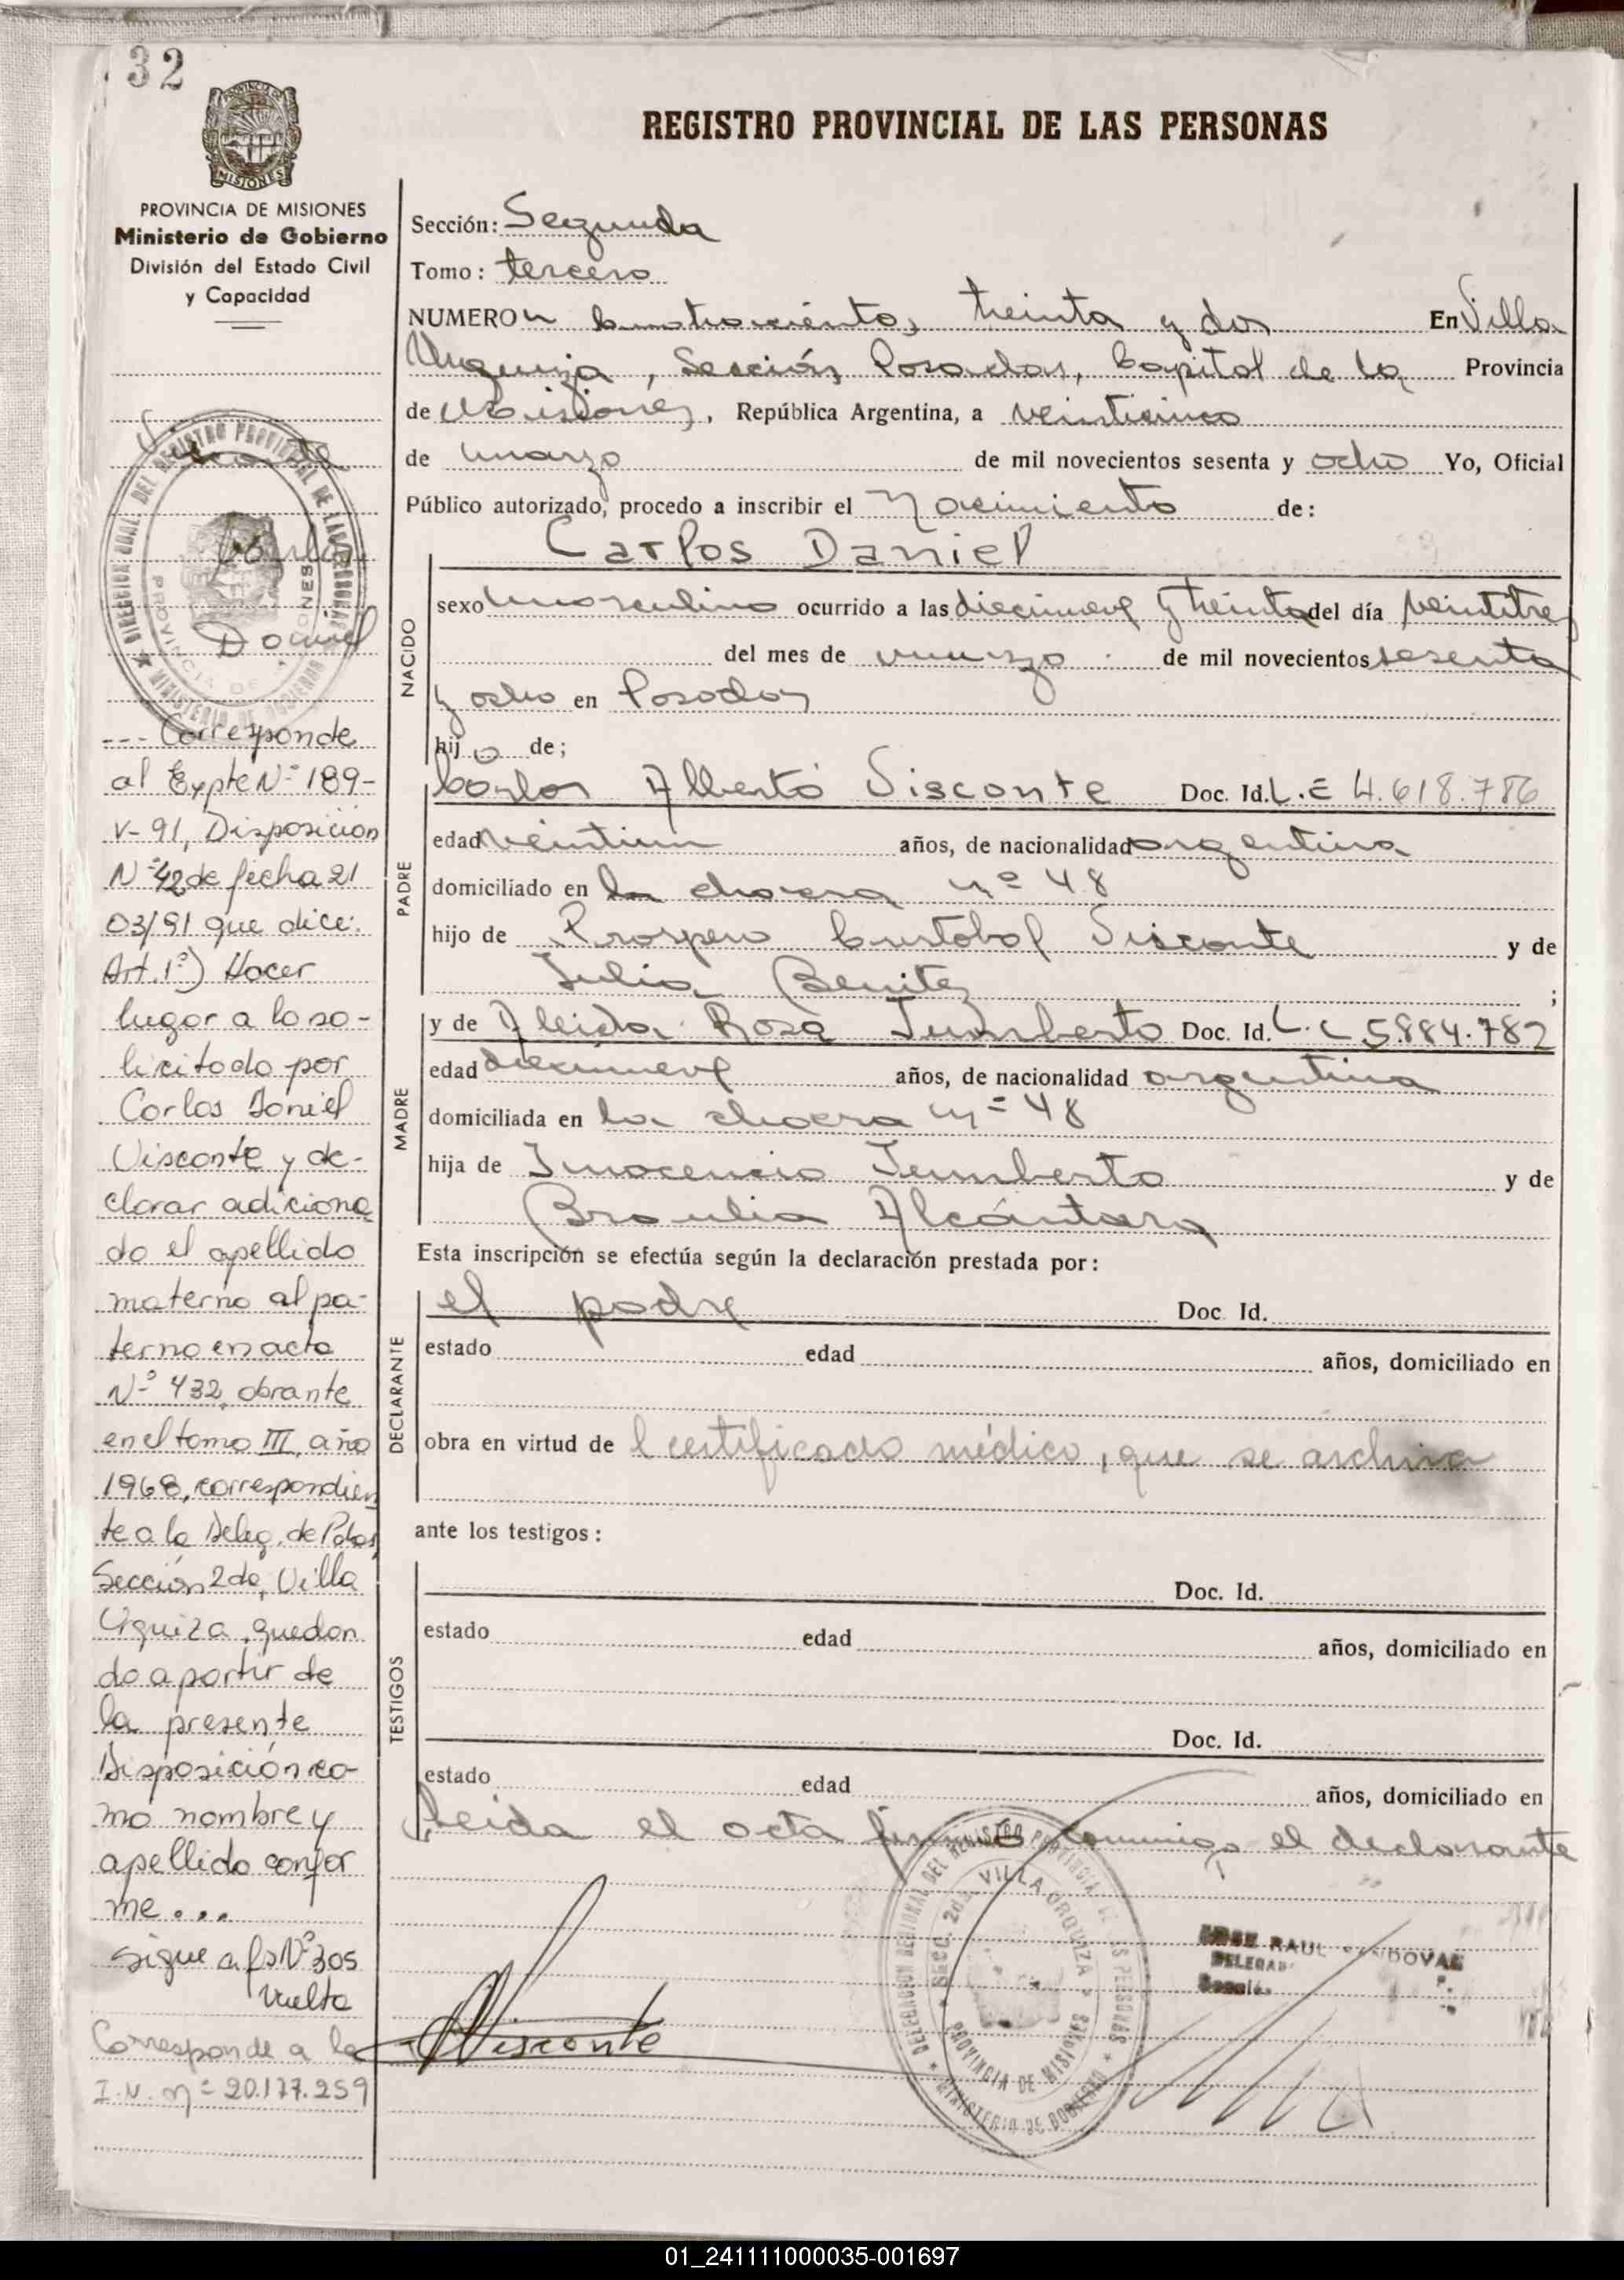 32
REGISTRO PROVINCIAL DE LAS PERSONAS
PROVINCIA DE MISIONES
Ministerio de Gobierno
División del Estado Civil
y Capacidad
Visconte
Carlos
Daniel
--- Corresponde
al Expte Nº 189-
V-91, Disposición
Nº 42 de fecha 21
03/91 que dice:
Art. 1º) Hacer
lugar a lo so-
licitado por
Carlos Daniel
Visconte y de-
clarar adiciona
do el apellido
materno al pa-
terno en acta
Nº 432, obrante
en el tomo III, año
1968, correspondien
te a la Deleg. de Pdas
Sección 2da, Villa
Urquiza, quedan
do a partir de
la presente
Disposición co-
mo nombre y
apellido confor
me...
sigue a fs Nº 305
vuelta
Corresponde a la
I.N. nº 20.177.259
Sección: Segunda
Tomo: tercero
NUMERO cuatrocientos treinta y dos En Villa
Urquiza, Sección Posadas, Capital de la Provincia
de Misiones, República Argentina, a veinticinco
de marzo de mil novecientos sesenta y ocho Yo, Oficial
Público autorizado, procedo a inscribir el Nacimiento de:
Carlos Daniel
NACIDO
sexo masculino ocurrido a las diecinueve y treinta del día veintitres
del mes de marzo de mil novecientos sesenta
y ocho en Posadas
hijo de;
PADRE
Carlos Alberto Visconte Doc. Id. L.E 4.618.786
edad veintiun años, de nacionalidad argentina
domiciliado en la chacra nº 48
hijo de Prospero Cristobal Visconte y de
Julia Benitez ;
MADRE
y de Aleida Rosa Jumberto Doc. Id. L.C 5.884.782
edad diecinueve años, de nacionalidad argentina
domiciliada en la chacra nº 48
hija de Inocencio Jumberto y de
Braulia Alcántara
Esta inscripción se efectúa según la declaración prestada por:
DECLARANTE
el padre Doc. Id.
estado edad años, domiciliado en
obra en virtud de l certificado médico, que se archiva
ante los testigos:
TESTIGOS
Doc. Id.
estado edad años, domiciliado en
Doc. Id.
estado edad años, domiciliado en
Leida el acta firma conmigo el declarante
DELEGACION REGIONAL DEL REGISTRO PROVINCIAL DE LAS PERSONAS
SECC. 2da. VILLA URQUIZA
PROVINCIA DE MISIONES
MINISTERIO DE GOBIERNO
JOSE RAUL SANDOVAL
Visconte
01_241111000035-001697